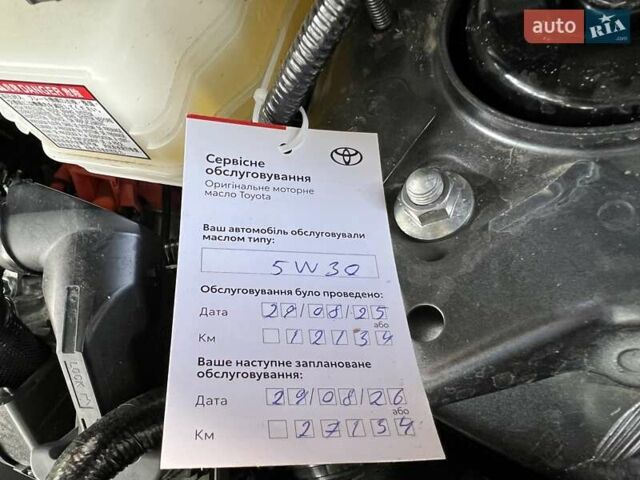 auto RIA
.com
DANGER
Сервісне
обслуговування
Оригінальне моторне
масло Toyota
Ваш автомобіль обслуговували
маслом типу:
5W30
Обслуговування було проведено:
Дата 29/08/25
або
Км 12134
Ваше наступне заплановане
обслуговування:
Дата 29/08/26
або
Км 27154
LOCK